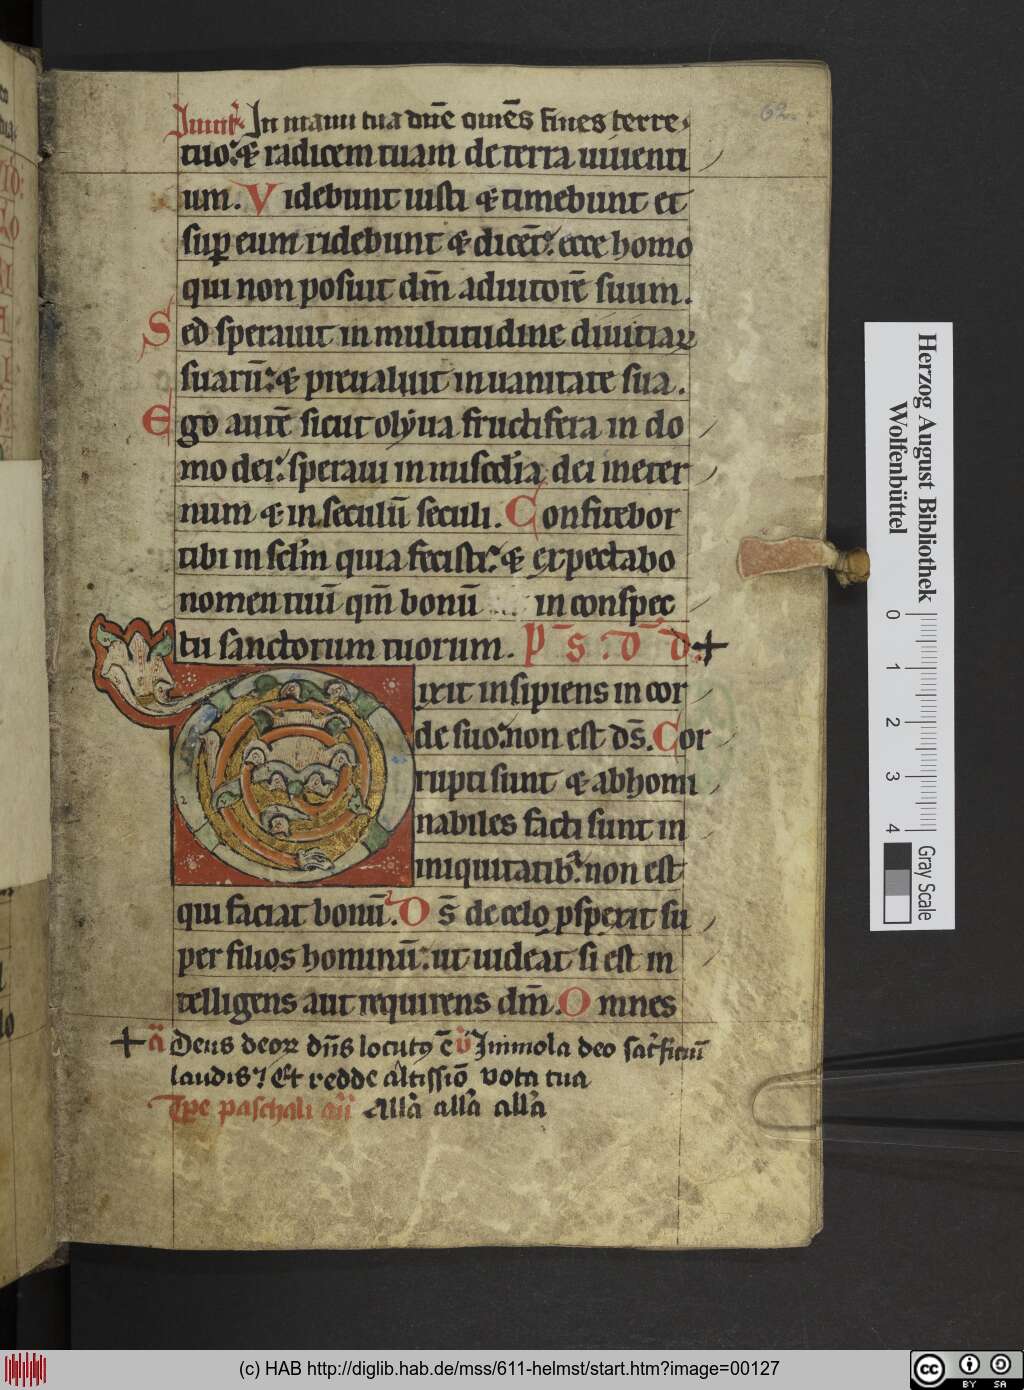 Inuit᷒ In manu tua dn̄e om̄es fines terre.
tuo: & radicem tuam de terra uiuenti
um. Videbunt iusti & timebunt et
sup eum ridebunt & dicēt: ecce homo
qui non posuit dm̄ adiutorē suum.
Sed sperauit in multitudine diuitiaꝝ
suarū: & preualuit in uanitate sua.
Ego autē sicut olyua fructifera in do
mo dei: speraui in mis̄cdia dei in eter
num & in seculū seculi. Confitebor
tibi in sclm quia fecisti: & expectabo
nomen tuū qm̄ bonū in conspec
tu sanctorum tuorum. P̄ S. D̄ D. +
ixit insipiens in cor
de suo: non est ds̄. Cor
rupti sunt & abhomi
nabiles facti sunt in
iniquitatib: non est
qui faciat bonū. D s̄ de celo pspexit su
per filios hominū: ut uideat si est in
telligens aut requirens dm̄. Omnes
+ a Deus deoꝝ dn̄s locutꝯ ē v Immola deo sacrificiū
laudis Et redde altissīo vota tua
Tpe paschali an̄ Alla alla alla
62.
Herzog August Bibliothek
Wolfenbüttel
0 1 2 3 4
Gray Scale
(c) HAB http://diglib.hab.de/mss/611-helmst/start.htm?image=00127
cc BY SA